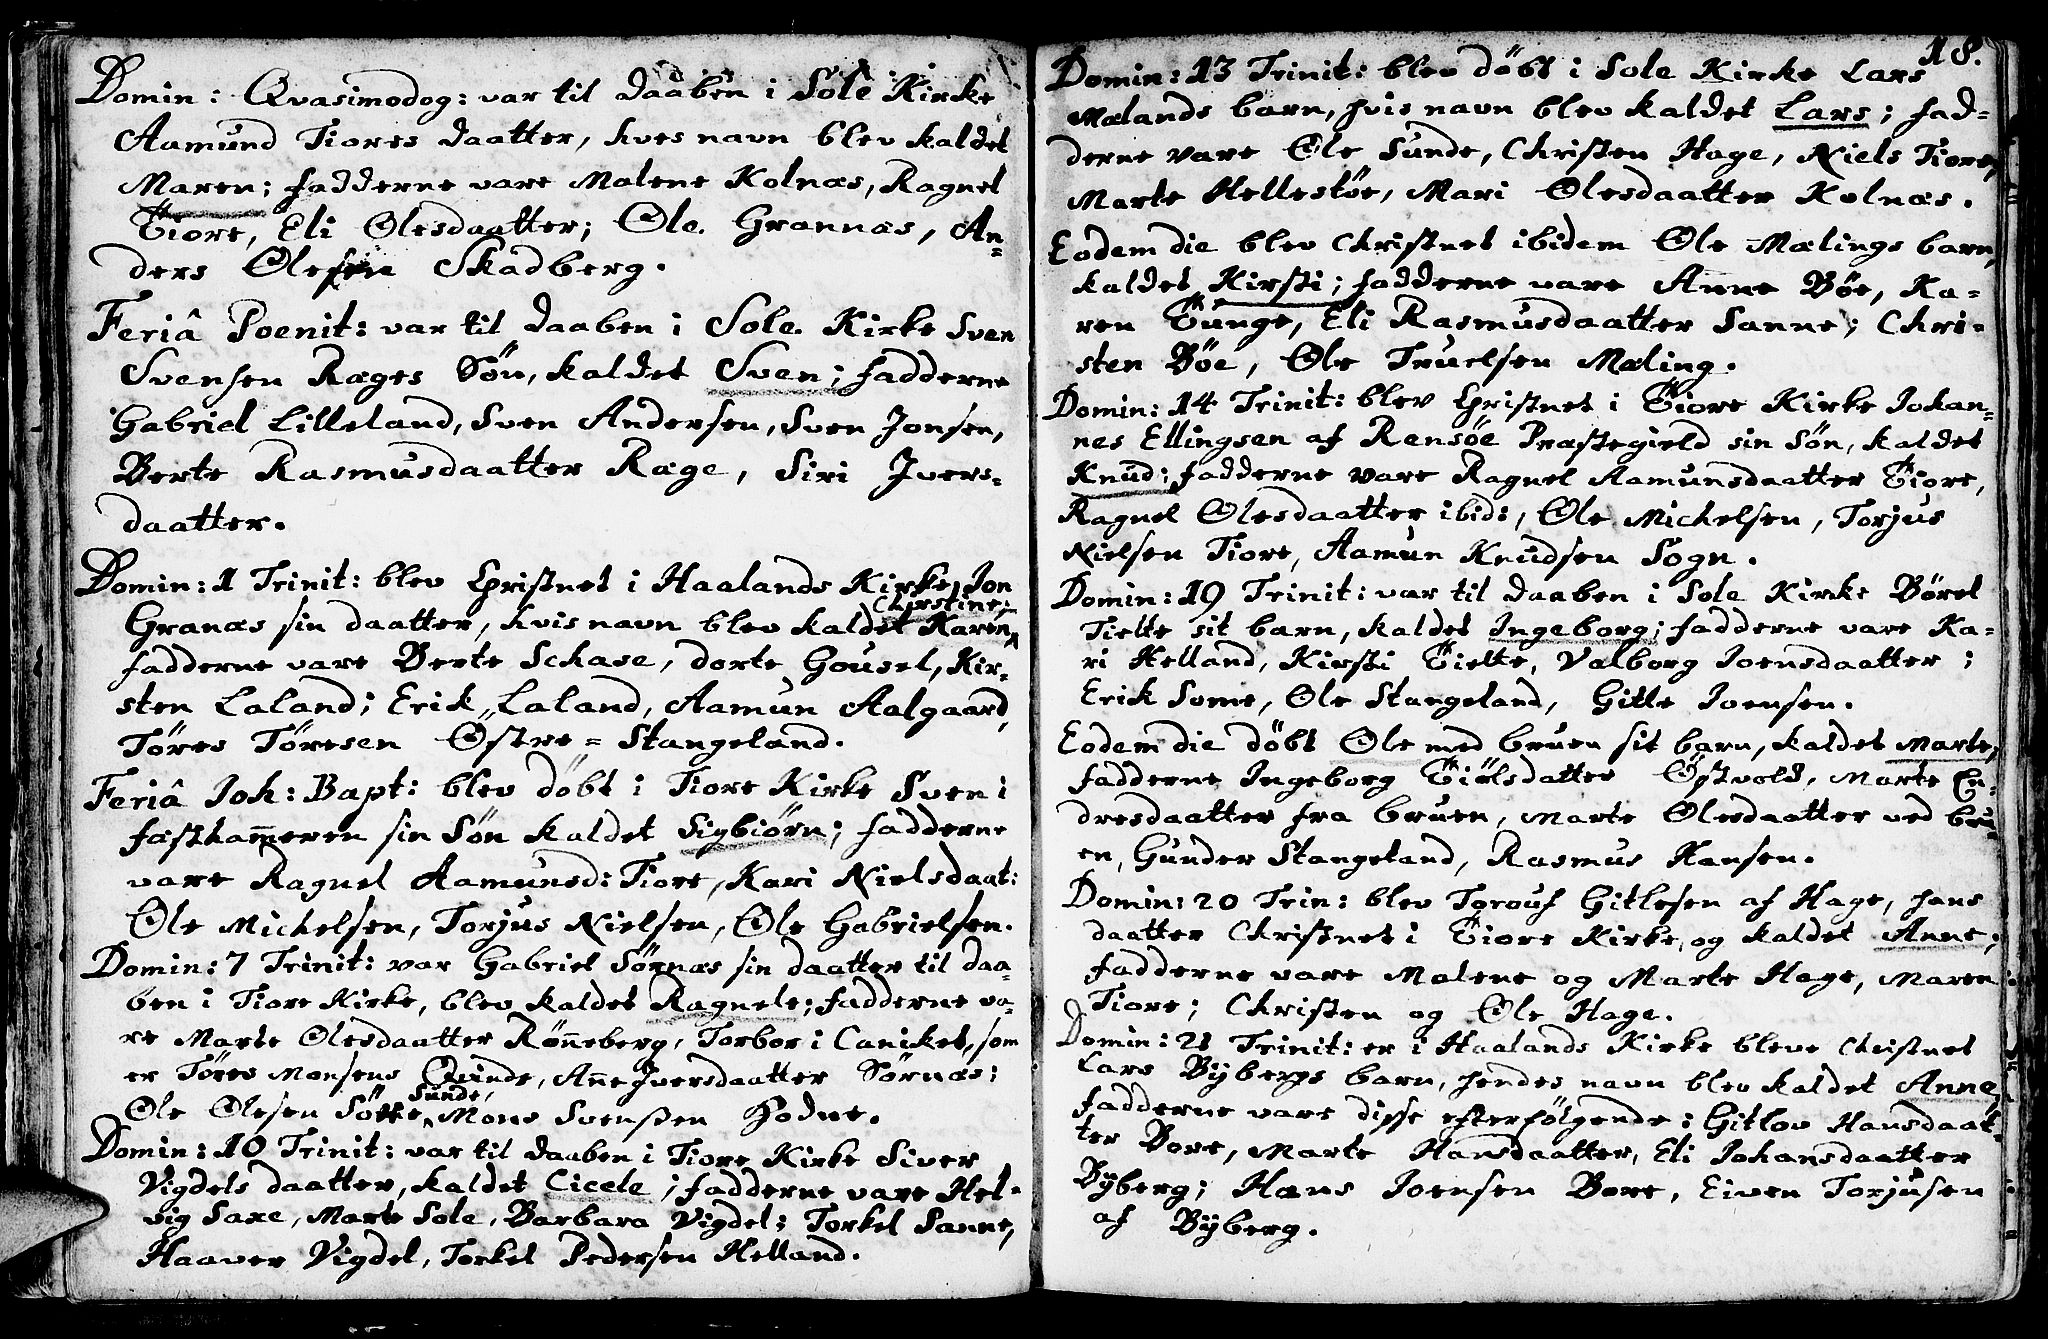 Domin: Qvasimodog: var til daaben i Sole Kirke
Aamund Tiores daatter, hves navn blev kaldet
Maren; fadderne vare Malene Kolnæs, Ragnel
Tiore, Eli Olesdaatter; Ole. Grannæs, An=
ders Olesen Skadberg.
Feriâ Poenit: var til daaben i Sole Kirke Sven
Svensen Ræges Sön, kaldet Sven; fadderne
Gabriel Lilleland, Sven Andersen, Sven Jonsen,
Berte Rasmusdaatter Ræge, Siri Ivers=
daatter.
Domin: 1 Trinit: blev Christnet i Haalands Kirke Jon
Granæs sin daatter, hvis navn blev kaldet Karen Christine;
fadderne vare Berte Schase, dorte Gousel, Kir=
sten Laland; Erik Laland, Aamun Aalgaard,
Töres Töresen Östre=Stangeland.
Feriâ Joh: Bapt: blev döbt i Tiore Kirke Sven i
fastham̄eren sin Sön kaldet Sigbiörn; fadderne
vare Ragnel Aamunsd: Tiore, Kari Nielsdaat:
Ole Michelsen, Torjus Nielsen, Ole Gabrielsen.
Domin: 7 Trinit: var Gabriel Sörnæs sin daatter til daa=
ben i Tiore Kirke, blev kaldet Ragnele; fadderne va=
re Marte Olesdaatter Rön̄eberg, Torbor i Caniket, som
er Töres Monsens Qvinde, An̄e Iversdaatter Sörnæs;
Ole Olesen Sötte Sunde, Mons Svensen Hodne.
Domin: 10 Trinit: var til daaben i Tiore Kirke Siver
Vigdels daatter, kaldet Cicele; fadderne vare Hel=
vig Saxe, Marte Sole, Barbara Vigdel; Torkel Sanne,
Haaver Vigdel, Torkel Pedersen Helland.
18.
Domin: 13 Trinit: blev döbt i Sole Kirke Lars
Mælands barn, hvis navn blev kaldet Lars; fad=
derne vare Ole Sunde, Christen Hage, Niels Tiore,
Marte Hellestöe, Mari Olesdaatter Kolnæs.
Eodem die blev Christnet ibidem Ole Mælings barn,
kaldet Kirsti; fadderne vare Anne Böe, Ka=
ren Tiunge, Eli Rasmusdaatter Sanne; Chri=
sten Böe, Ole Truelsen Mæling.
Domin: 14 Trinit: blev Christnet i Tiore Kirke Johan=
nes Ellingsen af Rensöe Præstegield sin Sön, kaldet
Knud; fadderne vare Ragnel Aamunsdaatter Tiore,
Ragnel Olesdaatter ibid:, Ole Michelsen, Torjus
Nielsen Tiore, Aamun Knudsen Sogn.
Domin: 19 Trinit: var til daaben i Sole Kirke Börel
Tielte sit barn, kaldet Ingeborg; fadderne vare Ka=
ri Helland, Kirsti Tielte, Valborg Joensdaatter;
Erik Some, Ole Stangeland, Gitle Joensen.
Eodem die döbt Ole med bruen sit barn, kaldet Marte,
fadderne Ingeborg Tiölsdatter Östvold, Marte En=
dresdaatter fra bruen, Marte Olesdaatter ved bru=
en, Gunder Stangeland, Rasmus Hansen.
Domin: 20 Trin: blev Torouf Gitlesen af Hage, hans
daatter Christnet i Tiore Kirke, og kaldet Anne;
fadderne vare Malene og Marte Hage, Maren
Tiore; Christen og Ole Hage.
Domin: 21 Trinit: er i Haalands Kirke bleve Christnet
Lars Bÿbergs barn, hendes navn blev kaldet Anna,
fadderne vare disse efterfölgende: Gitlov Hansdaat=
ter Bore, Marte Hansdaatter, Eli Johansdaatter
Bÿberg; Hans Joensen Bore, Eiven Torjusen
af Bÿberg.